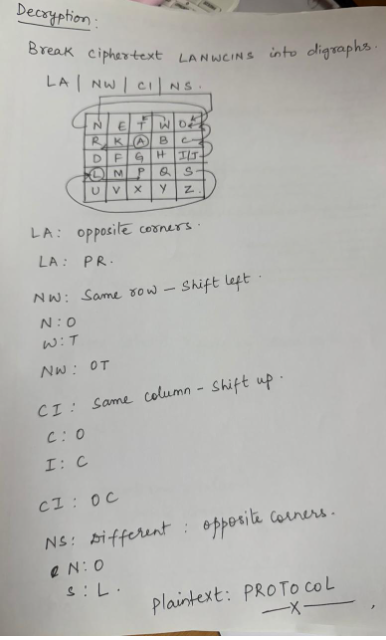 Decryption:
Break ciphertext LANWCINS into digraphs.
LA | NW | CI | NS.
N E T W O
R K A B C
D F G H I/J
L M P Q S
U V X Y Z
LA: opposite corners.
LA: PR.
NW: Same row - Shift left.
N: O
W: T
NW: OT
CI: Same column - Shift up.
C: O
I: C
CI: OC
NS: Different: opposite corners.
N: O
S: L.
Plaintext: PROTOCOL
X